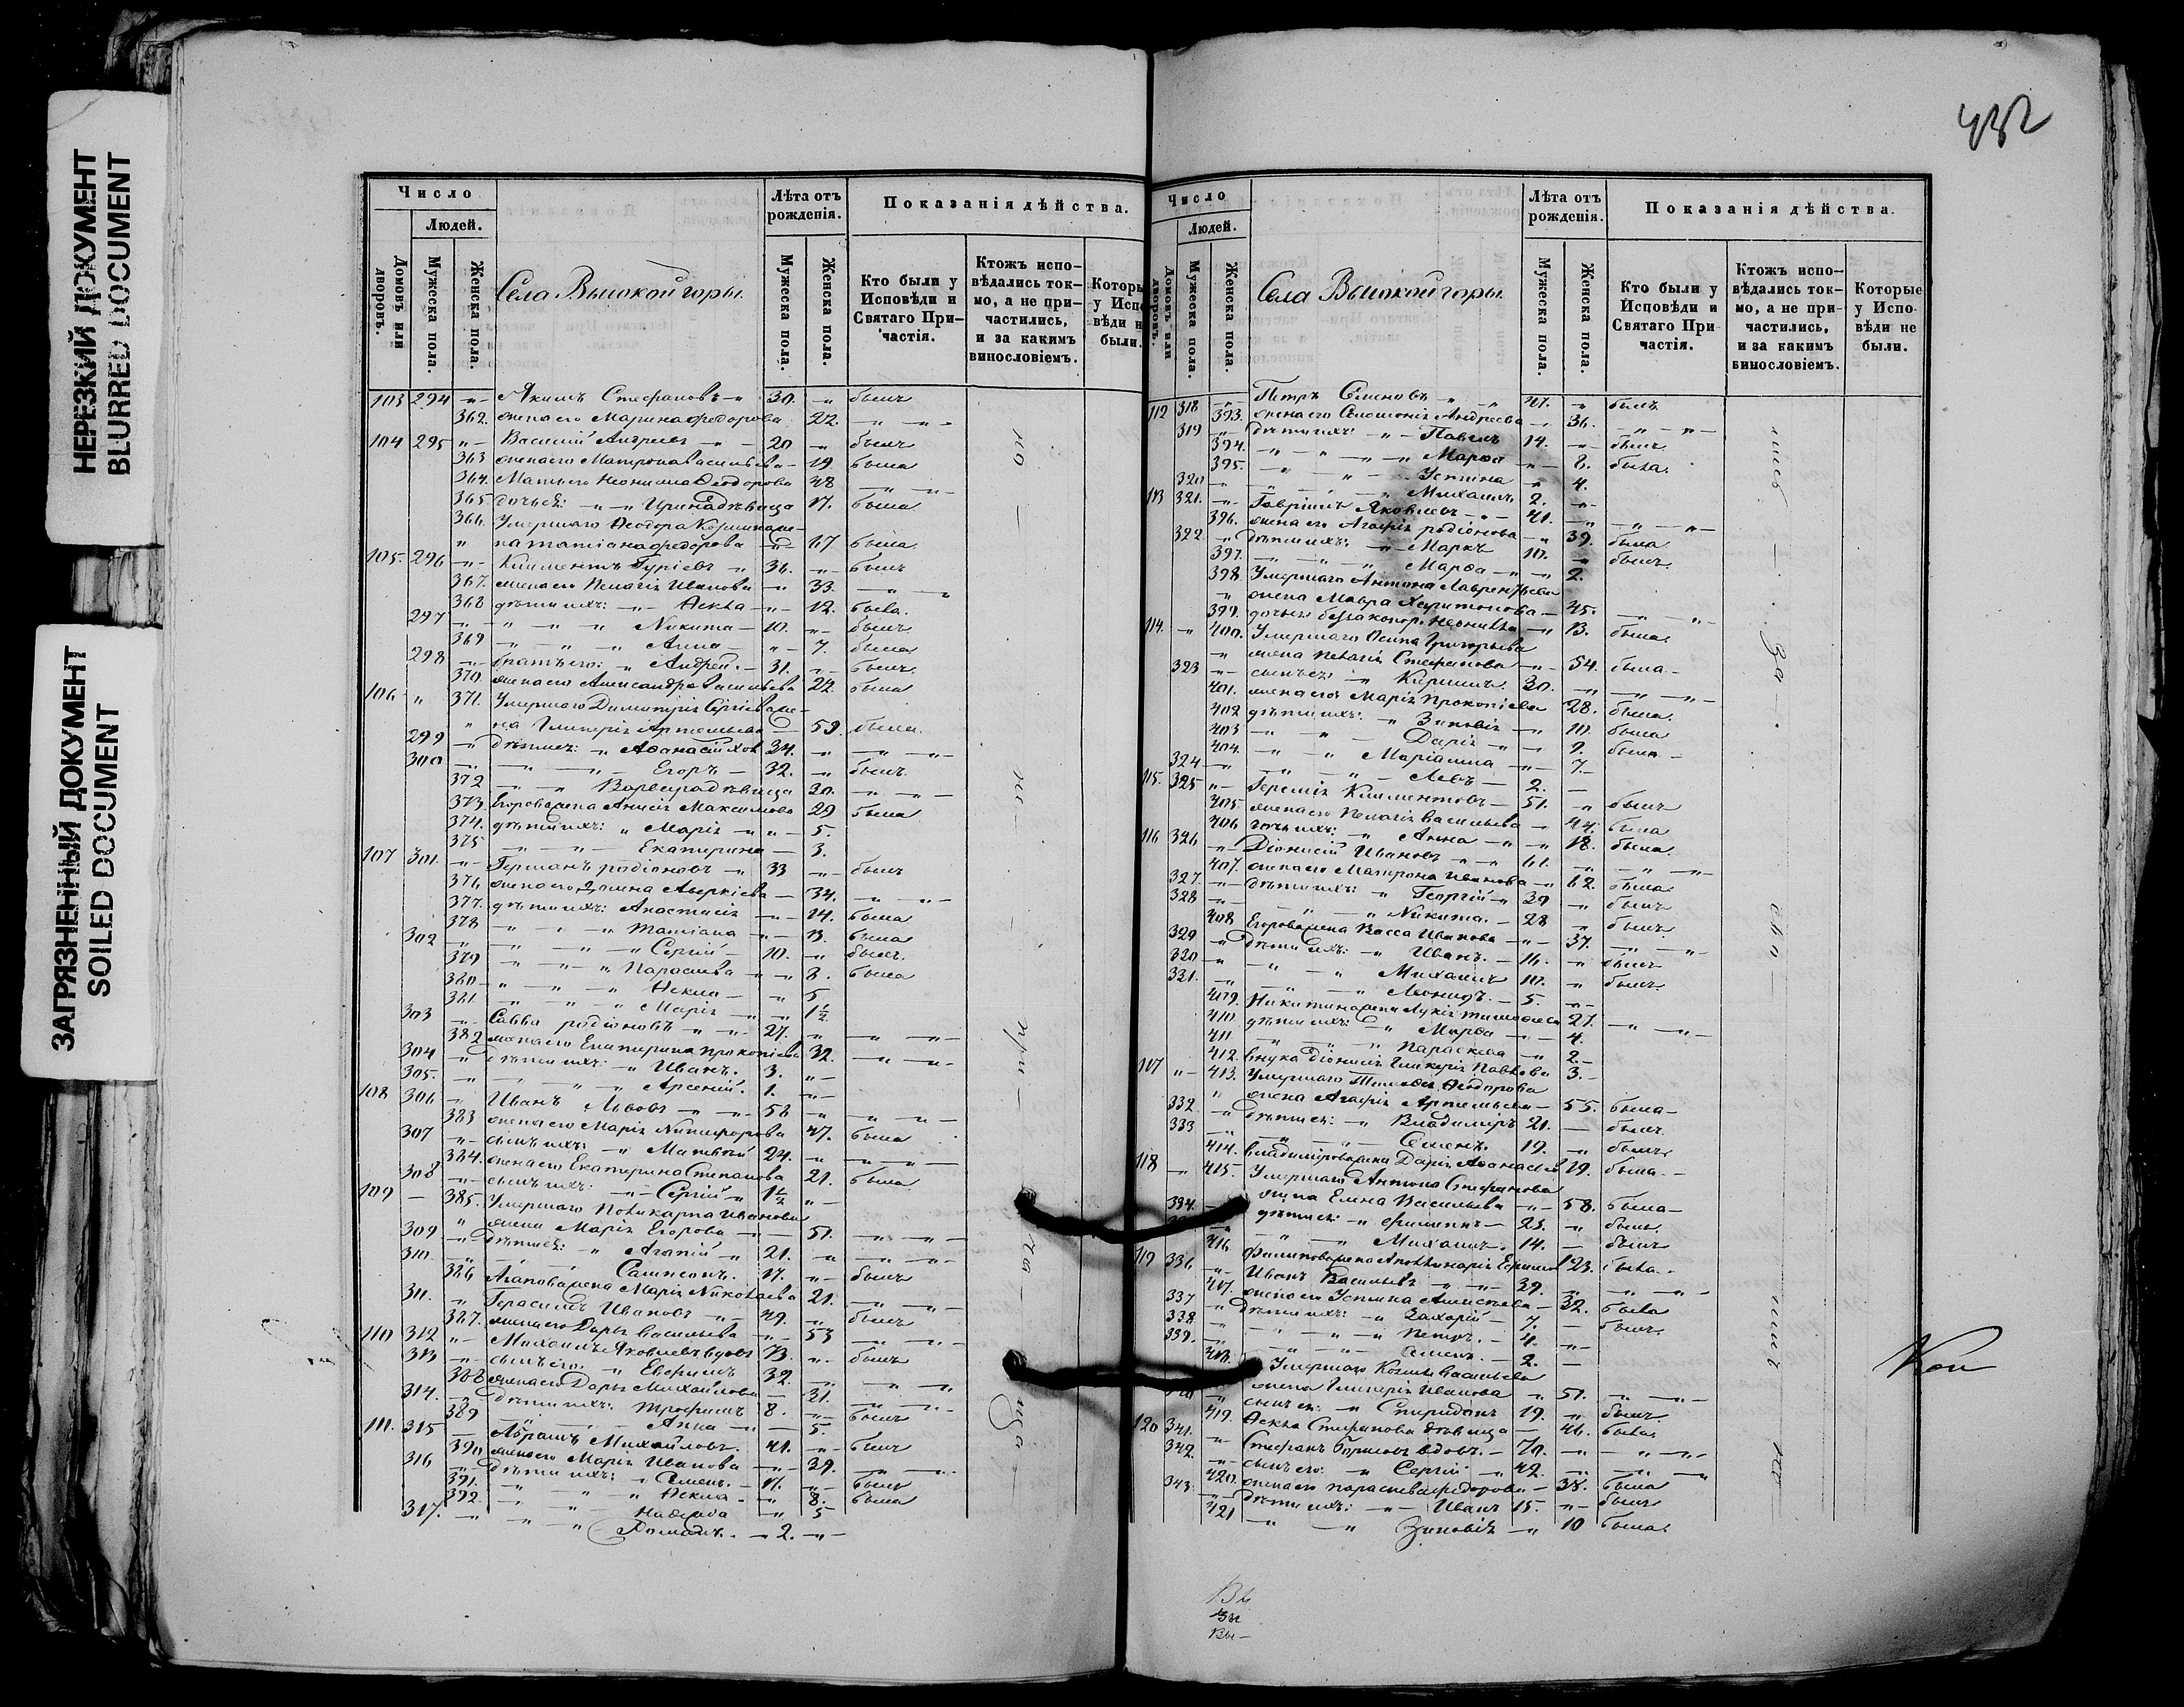 НЕРЕЗКИЙ ДОКУМЕНТ
BLURRED DOCUMENT
ЗАГРЯЗНЕННЫЙ ДОКУМЕНТ
SOILED DOCUMENT
Число
Людей.
Домовъ или дворовъ.
Мужеска пола.
Женска пола.
Села Высокой горы.
Лѣта отъ рожденія.
Мужеска пола.
Женска пола.
Показанія дѣйства.
Кто были у Исповѣди и Святаго Причастія.
Ктожъ исповѣдались токмо, а не причастились, и за какимъ винословіемъ.
были.
103 294 Акимъ Стефановъ 30. былъ
362. жена его Марина Федорова 22.
104 295 Василій Андреевъ 20 былъ
363 жена его Матрона Васильева 19. была
364. Мать его Неонила Феодорова 48
365 дочь ея: Ирина дѣвица 17. была
366. Умершаго Феодора
на Татіана Федорова 67 была
105. 296 Климентъ Гуріевъ 36. былъ
367. жена его Пелагія Иванова 33.
368 дѣти ихъ: Ѳекла 12. была.
297 Никита 10. былъ
369 Анна 7. была
298 братъ его: Андрей. 31. былъ
370. жена его Александра Васильева 22. была
106 371. Умершаго Димитрія Сергіева же-
на Гликерія Артемьева 59. была.
299 дѣти ея: Аѳанасій хол 34.
300 Егоръ 32. былъ
372 Варвара дѣвица 20.
373. Егорова жена Анисія Максимова 29 была
374. дѣти ихъ: Марія 5.
375 Екатерина 3.
107 301. Германъ Родіоновъ 33 былъ
376 жена его Домна Аверкіева 34.
377. дѣти ихъ: Анастасія 14. была
378 Татіана 13. была
302 Сергій 10. былъ
379 Параскева 8. была
380 Ѳекла 5
381 Марія 1½
303 Савва Родіоновъ 27.
382 жена его Екатерина Прокопіева 32.
304 дѣти ихъ: Иванъ. 3.
305. Арсеній. 1.
108 306 Иванъ Львовъ 58
383 жена его Марія Никифорова 47. была
307 сынъ ихъ: Матвѣй 24.
384. жена его Екатерина Степанова 21. была
308 сынъ ихъ: Сергій 1½
109 385. Умершаго Поликарпа Иванова
жена Марія Егорова 51.
309 дѣти ея: Агапій 21.
310. Сампсонъ. 17. былъ
386 Агапова жена Марія Николаева 21.
311. Герасимъ Ивановъ 49. былъ
387. жена его Дарья Васильева 53
110 312 Михаилъ Яковлевъ вдовъ 73. былъ
313 сынъ его: Евфимъ 32.
388 жена его Дарья Михайлова 31.
314. дѣти ихъ: Трофимъ 8. былъ
389 Анна 5.
111. 315 Абрамъ Михайловъ. 41. былъ
390 жена его Марія Иванова 39.
316 дѣти ихъ: Семенъ. 11. былъ
391. Ѳекла 8. была
392. Надежда 5
317. 2.
432
Число
Людей.
Домовъ или дворовъ.
Мужеска пола.
Женска пола.
Села Высокой горы.
Лѣта отъ рожденія.
Мужеска пола.
Женска пола.
Показанія дѣйства.
Кто были у Исповѣди и Святаго Причастія.
Ктожъ исповѣдались токмо, а не причастились, и за какимъ винословіемъ.
Которые у Исповѣди не были.
112 318 Петръ Семеновъ 41. былъ
393. жена его Соломонія Андреева 36.
319 дѣти ихъ: Павелъ 14. былъ
394. Марѳа 8. была.
395. Устина 4.
320 Михаилъ 2.
113 321. Гавріилъ Яковлевъ 41.
396. жена его Агафія Родіонова 39. была
322. дѣти ихъ: Маркъ 10. былъ.
397. Марѳа 2.
398. Умершаго Антона Лаврентьева
жена Мавра Харитонова 45.
399. дочь ея Неонила 13. была
114. 400. Умершаго Осипа Григорьева
жена Пелагія Стефанова 54. была
323 сынъ ея: Кириллъ. 30.
401. жена его Марія Прокопіева 28. была.
402 дѣти ихъ: Зиновія 10. была
403 Дарія 9. была
404. Маріамна 7.
324 Левъ 2.
115. 325 Іеремія Климентовъ 51. былъ
405. жена его Пелагія Васильева 44. была
406 дочь ихъ: Анна 18. была.
116 326 Діонисій Ивановъ 61.
407. жена его Матрона Иванова 62. была
327. дѣти ихъ: Георгій 39 былъ
328 Никита. 28 былъ.
408 Егорова жена Васса Иванова 37.
329 дѣти ихъ: Иванъ. 16. былъ
330 Михаилъ 10. былъ.
331. Леонидъ. 5.
409. Никитина жена Лукія Тимофеева 27.
410 дѣти ихъ: Марѳа 4.
411 Параскева 2.
412. внука Діонисія Гликерія Павлова 3.
117 413. Умершаго Тимофея Феодорова
жена Агафія Артемьева 55. была
332. дѣти ея: Владиміръ 21. былъ.
333 Семенъ. 19. былъ
414. Владимірова жена Дарія Аѳанасьева 19. была
118 415. Умершаго Антона Стефанова
жена Елена Васильева 58. была
334. дѣти ея: Филиппъ 23. былъ.
Михаилъ. 14. былъ
416 Филипова жена Аполлинарія 23. была.
119 336 Иванъ Васильевъ 39.
417. жена его Устина Алексѣева 32. была
337 дѣти ихъ: Захарій 7. былъ.
338 Петръ. 4.
339. Семенъ. 2.
418. Умершаго Козмы Васильева
жена Гликерія Иванова 51.
сынъ ея: Спиридонъ 19. былъ
419. Ѳекла Стефанова дѣвица 46. была.
120 341. Стефанъ Борисовъ вдовъ. 70.
342. сынъ его: Сергій 42.
420. жена его Параскева Федорова 38. была
343. дѣти ихъ: Иванъ 15. былъ
421 Зиновія 10 была.
Вы